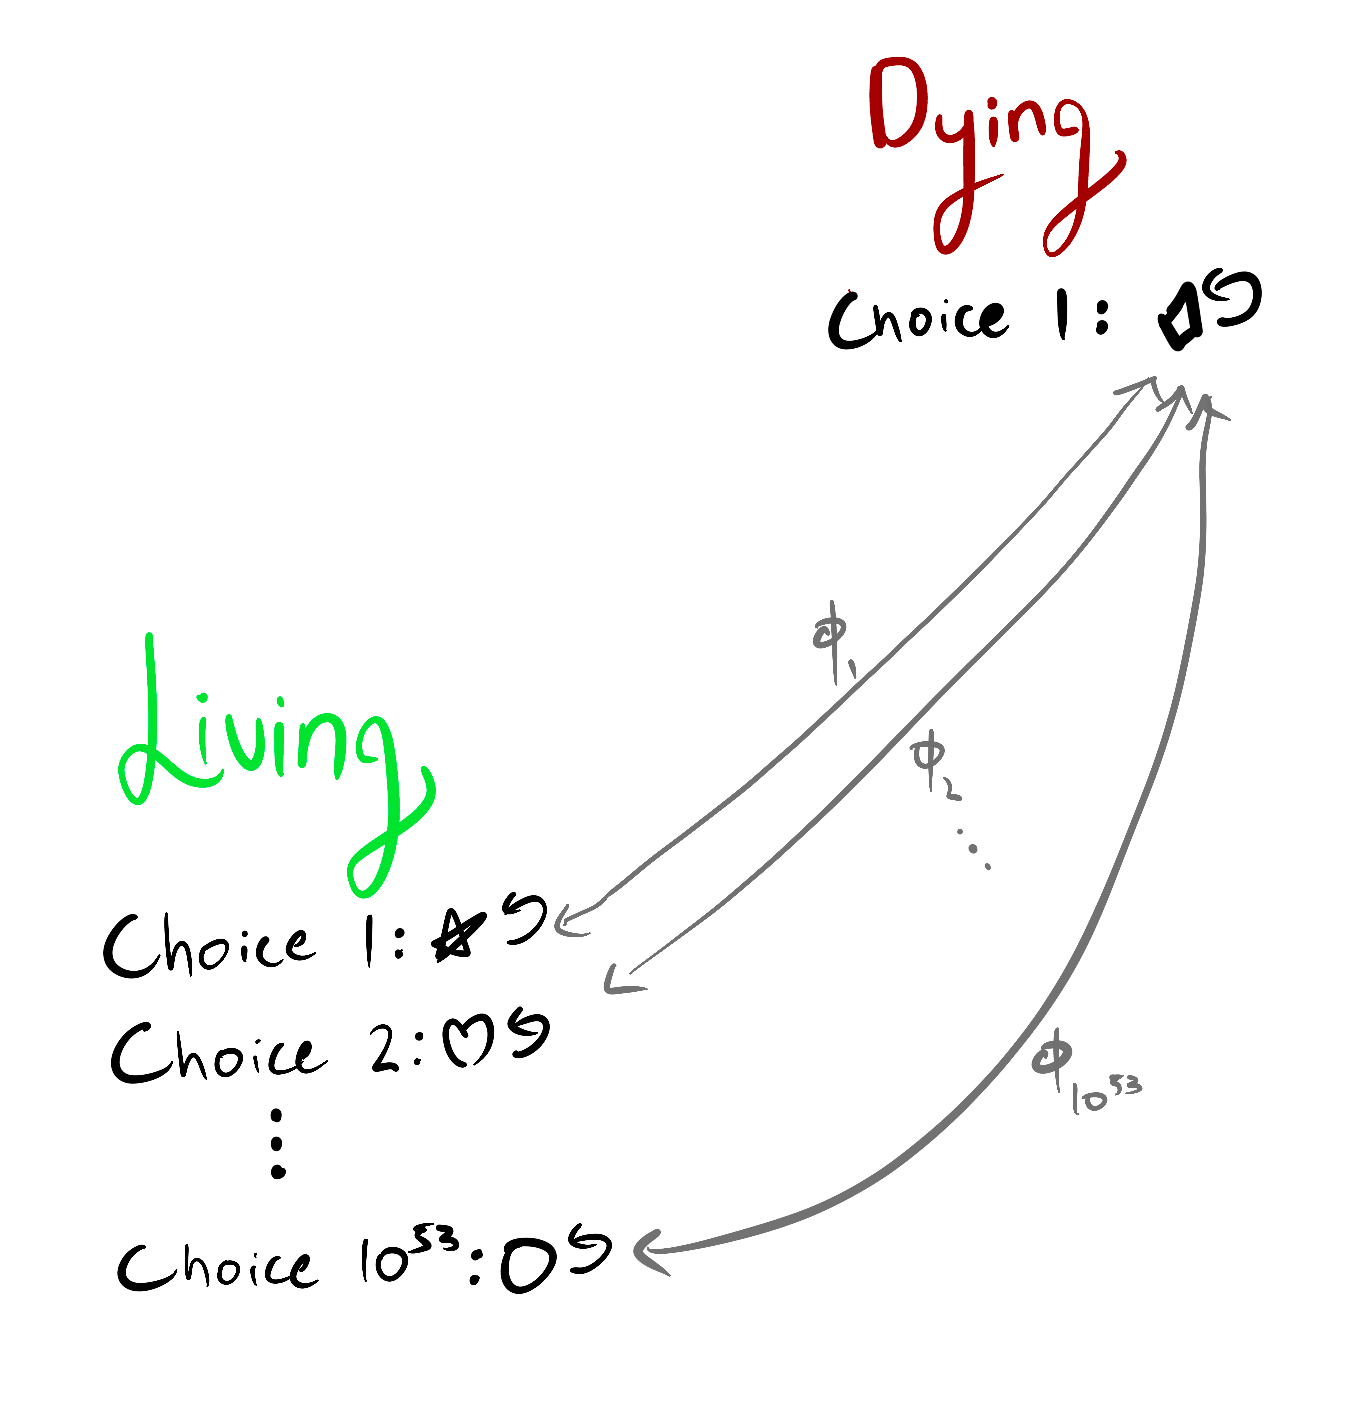 Dying
Choice 1:
ϕ₁
ϕ₂
Living
Choice 1:
Choice 2:
Choice 10⁵³:
ϕ₁₀⁵³